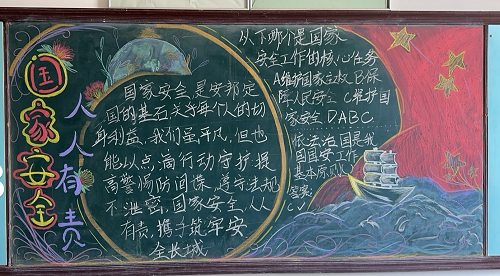 国家安全
人人有责
国家安全是安邦定
国的基石关乎每个人的切
身利益,我们虽平凡,但也
能从点滴行动守护提
高警惕防间谍,遵守法规
不泄密,国家安全人人
有责,携手筑牢安
全长城
以下哪个是国家
安全工作的核心任务
A维护国家主权B保
障人民安全C维护国
家安全DABC
依法治国是我
国国安工作
基本原则
答案: